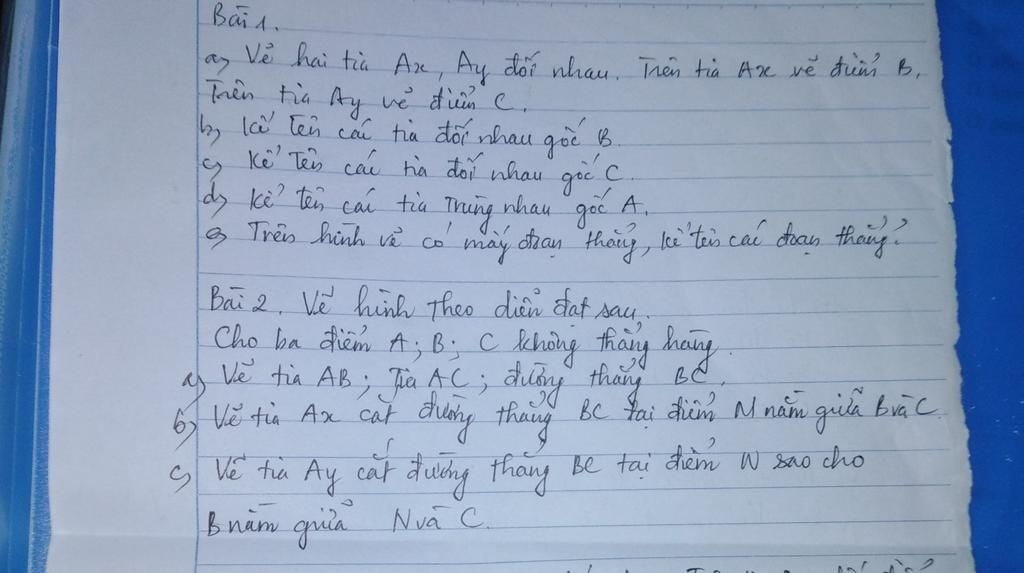 Bài 1.
a) Vẽ hai tia Ax, Ay đối nhau. Trên tia Ax vẽ điểm B,
Trên tia Ay vẽ điểm C.
b) Kể tên các tia đối nhau gốc B.
c) Kể tên các tia đối nhau gốc C.
d) Kể tên các tia trùng nhau gốc A.
e) Trên hình vẽ có mấy đoạn thẳng, kể tên các đoạn thẳng?
Bài 2. Vẽ hình theo diễn đạt sau.
Cho ba điểm A; B; C không thẳng hàng.
a) Vẽ tia AB; Tia AC; đường thẳng BC.
b) Vẽ tia Ax cắt đường thẳng BC tại điểm M nằm giữa B và C.
c) Vẽ tia Ay cắt đường thẳng BC tại điểm N sao cho
B nằm giữa N và C.